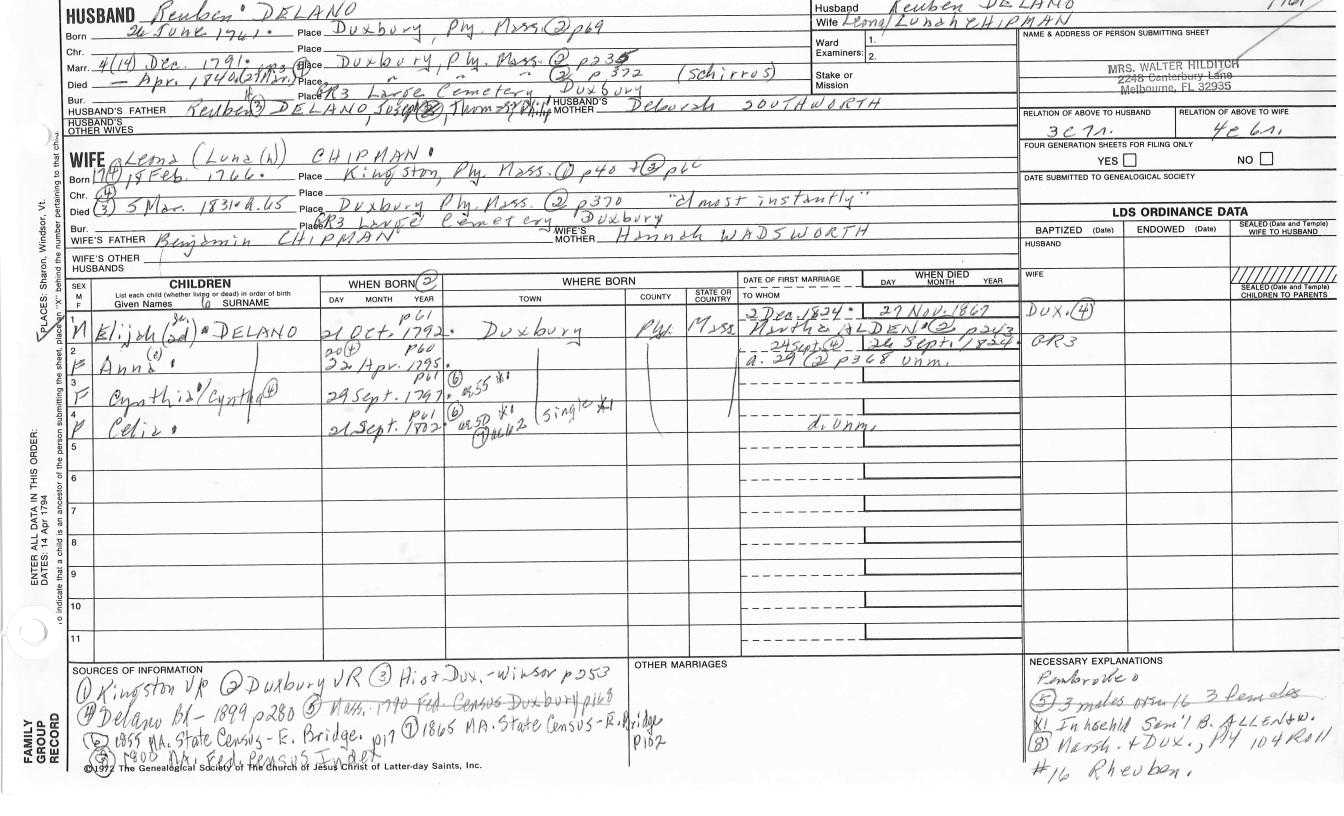 HUSBAND Reuben DELANO
Born 26 June 1761. Place Duxbury, Ply. Mass. (2) p69
Chr. Place
Marr. 4(14) Dec. 1791. Place Duxbury, Ply. Mass. (2) p235
Died — Apr. 1840 (27 Mar.) Place " " (2) p372 (schirrus)
Bur. Place GR3 Large Cemetery Duxbury
HUSBAND'S FATHER Reuben (3) DELANO, HUSBAND'S MOTHER Deborah SOUTHWORTH
HUSBAND'S OTHER WIVES
WIFE Leona (Luna(h)) CHIPMAN
Born 17(4) 18 Feb. 1766. Place Kingston, Ply. Mass. (1) p40
Chr. (4) Place
Died (3) 5 Mar. 1831. a.65 Place Duxbury Ply. Mass. (2) p370 "almost instantly"
Bur. Place GR3 Large Cemetery Duxbury
WIFE'S FATHER Benjamin CHIPMAN WIFE'S MOTHER Hannah WADSWORTH
WIFE'S OTHER HUSBANDS
Husband Reuben DELANO 1761
Wife Leona/Lunah CHIPMAN
Ward Examiners: 1.
2.
Stake or Mission
NAME & ADDRESS OF PERSON SUBMITTING SHEET
MRS. WALTER HILDITCH
2248 Canterbury Lane
Melbourne, FL 32935
RELATION OF ABOVE TO HUSBAND RELATION OF ABOVE TO WIFE
3c7r. 4c6r.
FOUR GENERATION SHEETS FOR FILING ONLY
YES NO
DATE SUBMITTED TO GENEALOGICAL SOCIETY
LDS ORDINANCE DATA
BAPTIZED (Date) ENDOWED (Date) SEALED (Date and Temple) WIFE TO HUSBAND
HUSBAND
WIFE
SEALED (Date and Temple) CHILDREN TO PARENTS
SEX M F
CHILDREN
List each child (whether living or dead) in order of birth
Given Names SURNAME
WHEN BORN (2)
DAY MONTH YEAR
WHERE BORN
TOWN COUNTY STATE OR COUNTRY
DATE OF FIRST MARRIAGE
TO WHOM
WHEN DIED
DAY MONTH YEAR
1 M Elijah (2d) DELANO p61 21 Oct. 1792. Duxbury Ply. Mass 2 Dec. 1824. 27 Nov. 1867 DUX. (4)
Martha ALDEN (2) p243
2 F Anna (e) 20(4) p60 22 Apr. 1795. 24 Sept (4) 26 Sept. 1824. GR3
a. 29 (2) p368 unm.
3 F Cynthia/Cyntha (4) p61 29 Sept. 1797. (6) a55 *1
4 F Celia p61 21 Sept. 1802. (6) a50 *1 (7) a62 (single *1 d. unm.
5
6
7
8
9
10
11
SOURCES OF INFORMATION
(1) Kingston VR (2) Duxbury VR (3) Hist Dux.-Winsor p253
(4) Delano Bl-1899 p280 (5) Mass. 1790 Fed. Census Duxbury p168
(6) 1855 MA. State Census-E. Bridge. p17 (7) 1865 MA. State Census-E. Bridge p102
(8) 1800 MA. Fed. Census Index
©1972 The Genealogical Society of The Church of Jesus Christ of Latter-day Saints, Inc.
OTHER MARRIAGES
NECESSARY EXPLANATIONS
Pembroke
(5) 3 males over 16 3 females
*1 In hsehld Sam'l B. ALLEN
(8) Marsh. + Dux., Ply 104 Roll
#16 Rheuben.
PLACES: Sharon, Windsor, Vt.
to indicate that a child is an ancestor of the person submitting the sheet, place an "X" behind the number pertaining to that child
ENTER ALL DATA IN THIS ORDER:
DATES: 14 Apr 1794
FAMILY
GROUP
RECORD